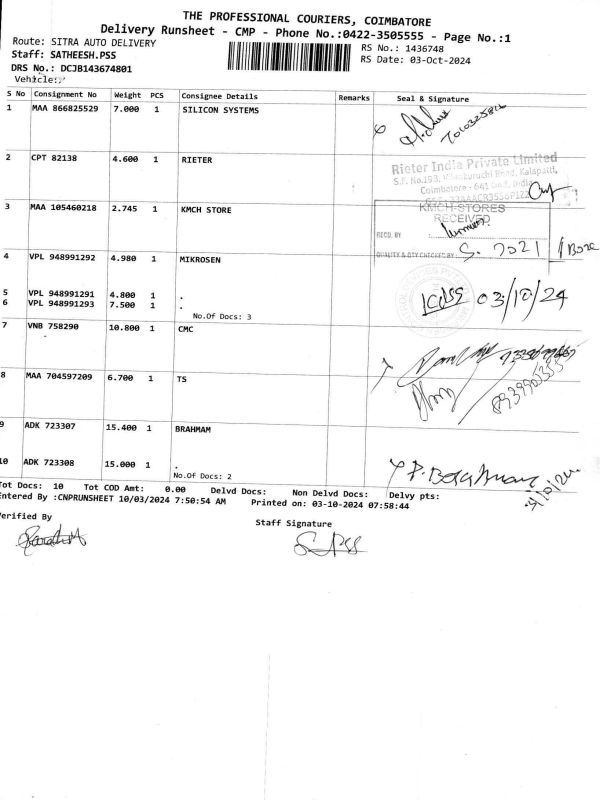 THE PROFESSIONAL COURIERS, COIMBATORE
Delivery Runsheet - CMP - Phone No.:0422-3505555 - Page No.:1
Route: SITRA AUTO DELIVERY RS No.: 1436748
Staff: SATHEESH.PSS RS Date: 03-Oct-2024
DRS No.: DCJB143674801
Vehicle:
S No Consignment No Weight PCS Consignee Details Remarks Seal & Signature
1 MAA 866825529 7.000 1 SILICON SYSTEMS
2 CPT 82138 4.600 1 RIETER
Rieter India Private Limited
Coimbatore - 641
3 MAA 105460218 2.745 1 KMCH STORE
KMCH-STORES
RECEIVED
RECD. BY
QUALITY & QTY CHECKED BY
S. 2021 1 Box
4 VPL 948991292 4.980 1 MIKROSEN
5 VPL 948991291 4.800 1 .
6 VPL 948991293 7.500 1 .
No.Of Docs: 3
03/10/24
7 VNB 758290 10.800 1 CMC
8 MAA 704597209 6.700 1 TS
9 ADK 723307 15.400 1 BRAHMAM
10 ADK 723308 15.000 1 .
No.Of Docs: 2
Tot Docs: 10 Tot COD Amt: 0.00 Delvd Docs: Non Delvd Docs: Delvy pts:
Entered By :CNPRUNSHEET 10/03/2024 7:50:54 AM Printed on: 03-10-2024 07:58:44
Verified By
Staff Signature